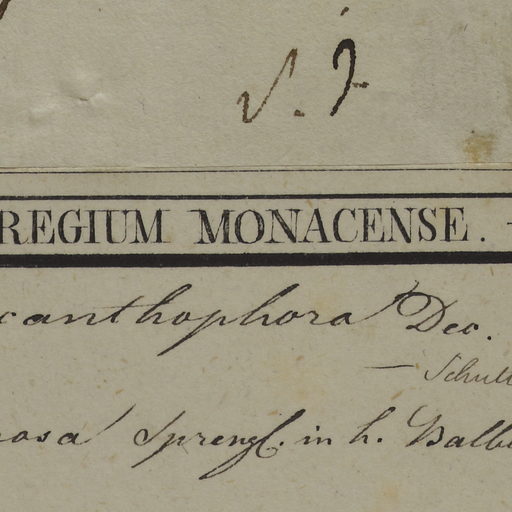 REGIUM MONACENSE. -
canthophora Dec.
— Schult
osa Sprengl. in h. Balb